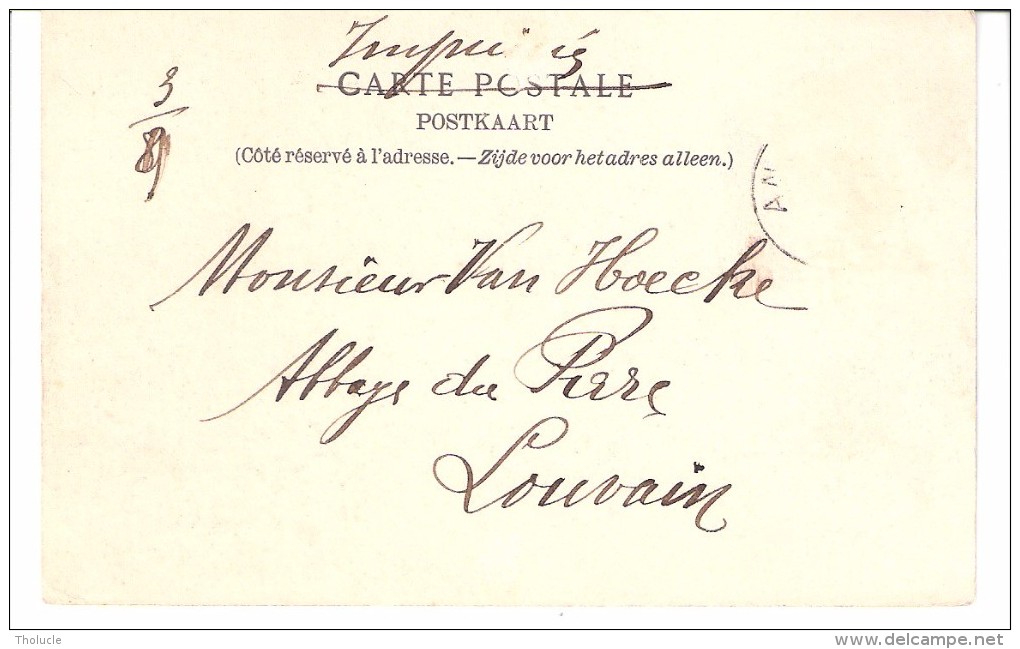 Imprimés
CARTE POSTALE
POSTKAART
(Côté réservé à l'adresse.—Zijde voor het adres alleen.)
3
AN
Monsieur Van Hoecke
Abbaye du
Louvain
Tholucle
www.delcampe.net